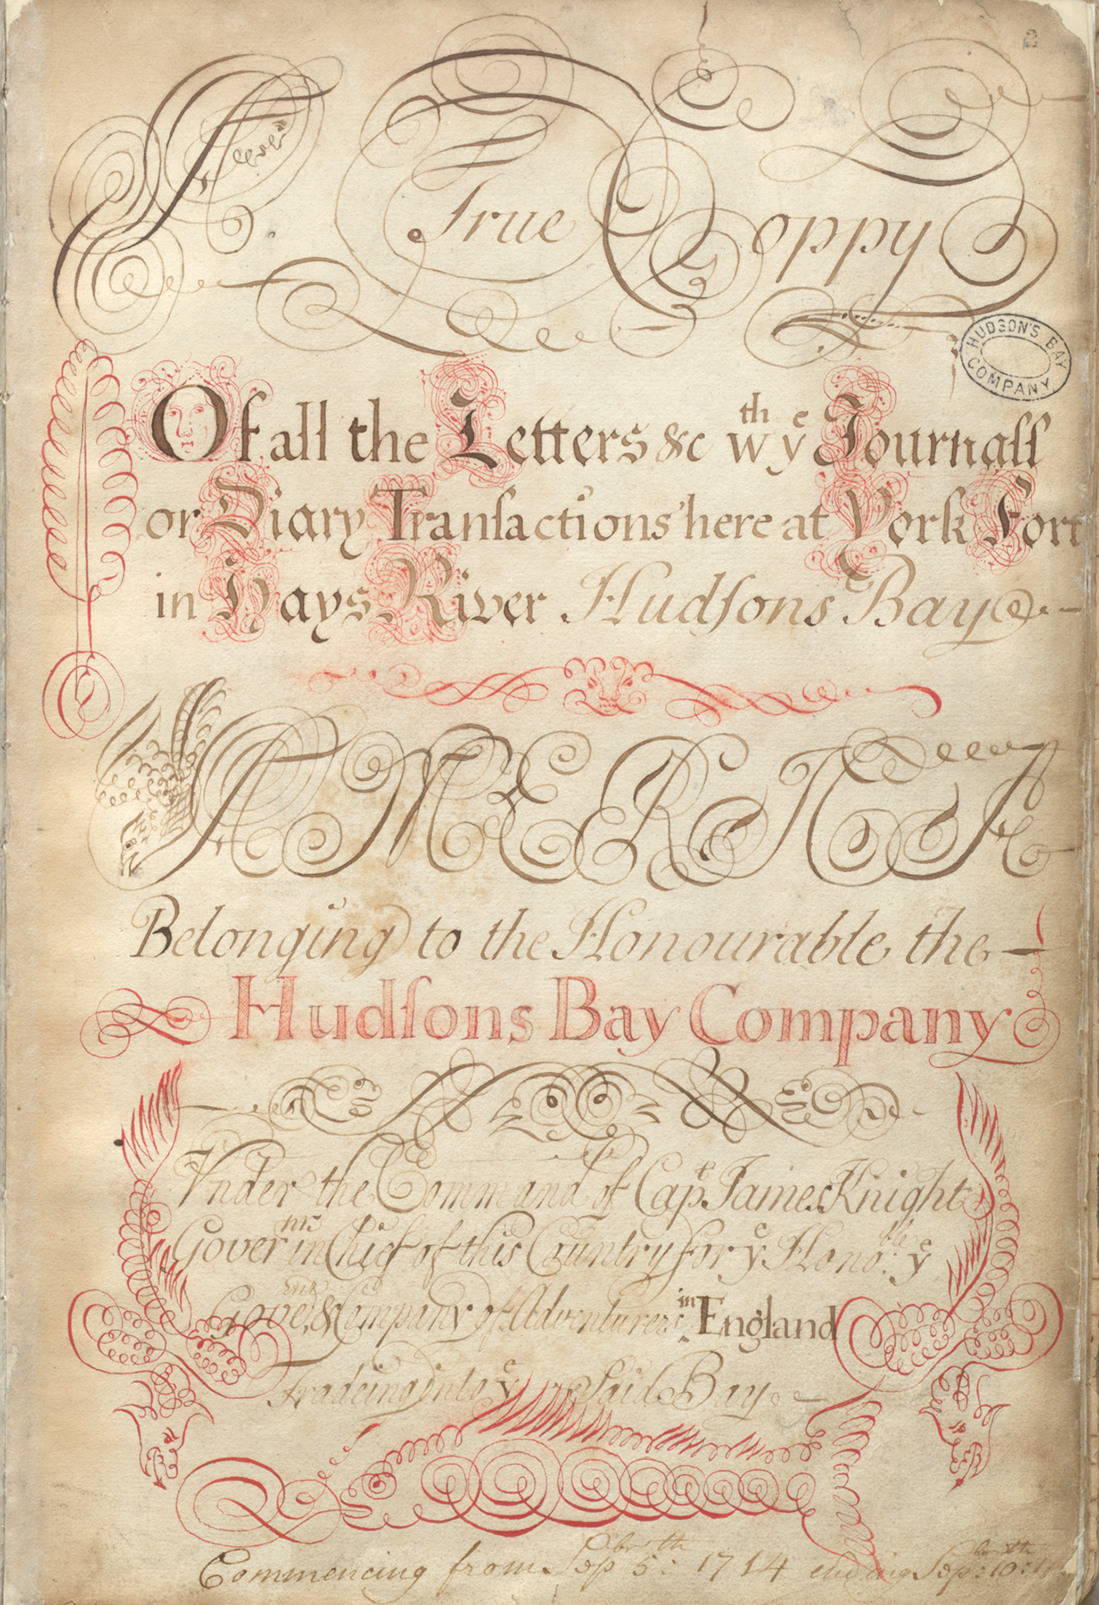 2
A True Coppy
HUDSON'S BAY COMPANY
Of all the Letters &c wth ye Journall
or Diary Transactions here at York Fort
in Hays River Hudsons Bay
AMERICA
Belonging to the Honourable the
Hudsons Bay Company
Vnder the Command of Capt James Knight
Goverr in Chief of this Country for ye Honoble ye
& Company of Adventurers in England
Tradeing into ye Said Bay
Commencing from Sepbr 5th: 1714 ending Sepbr 10th: